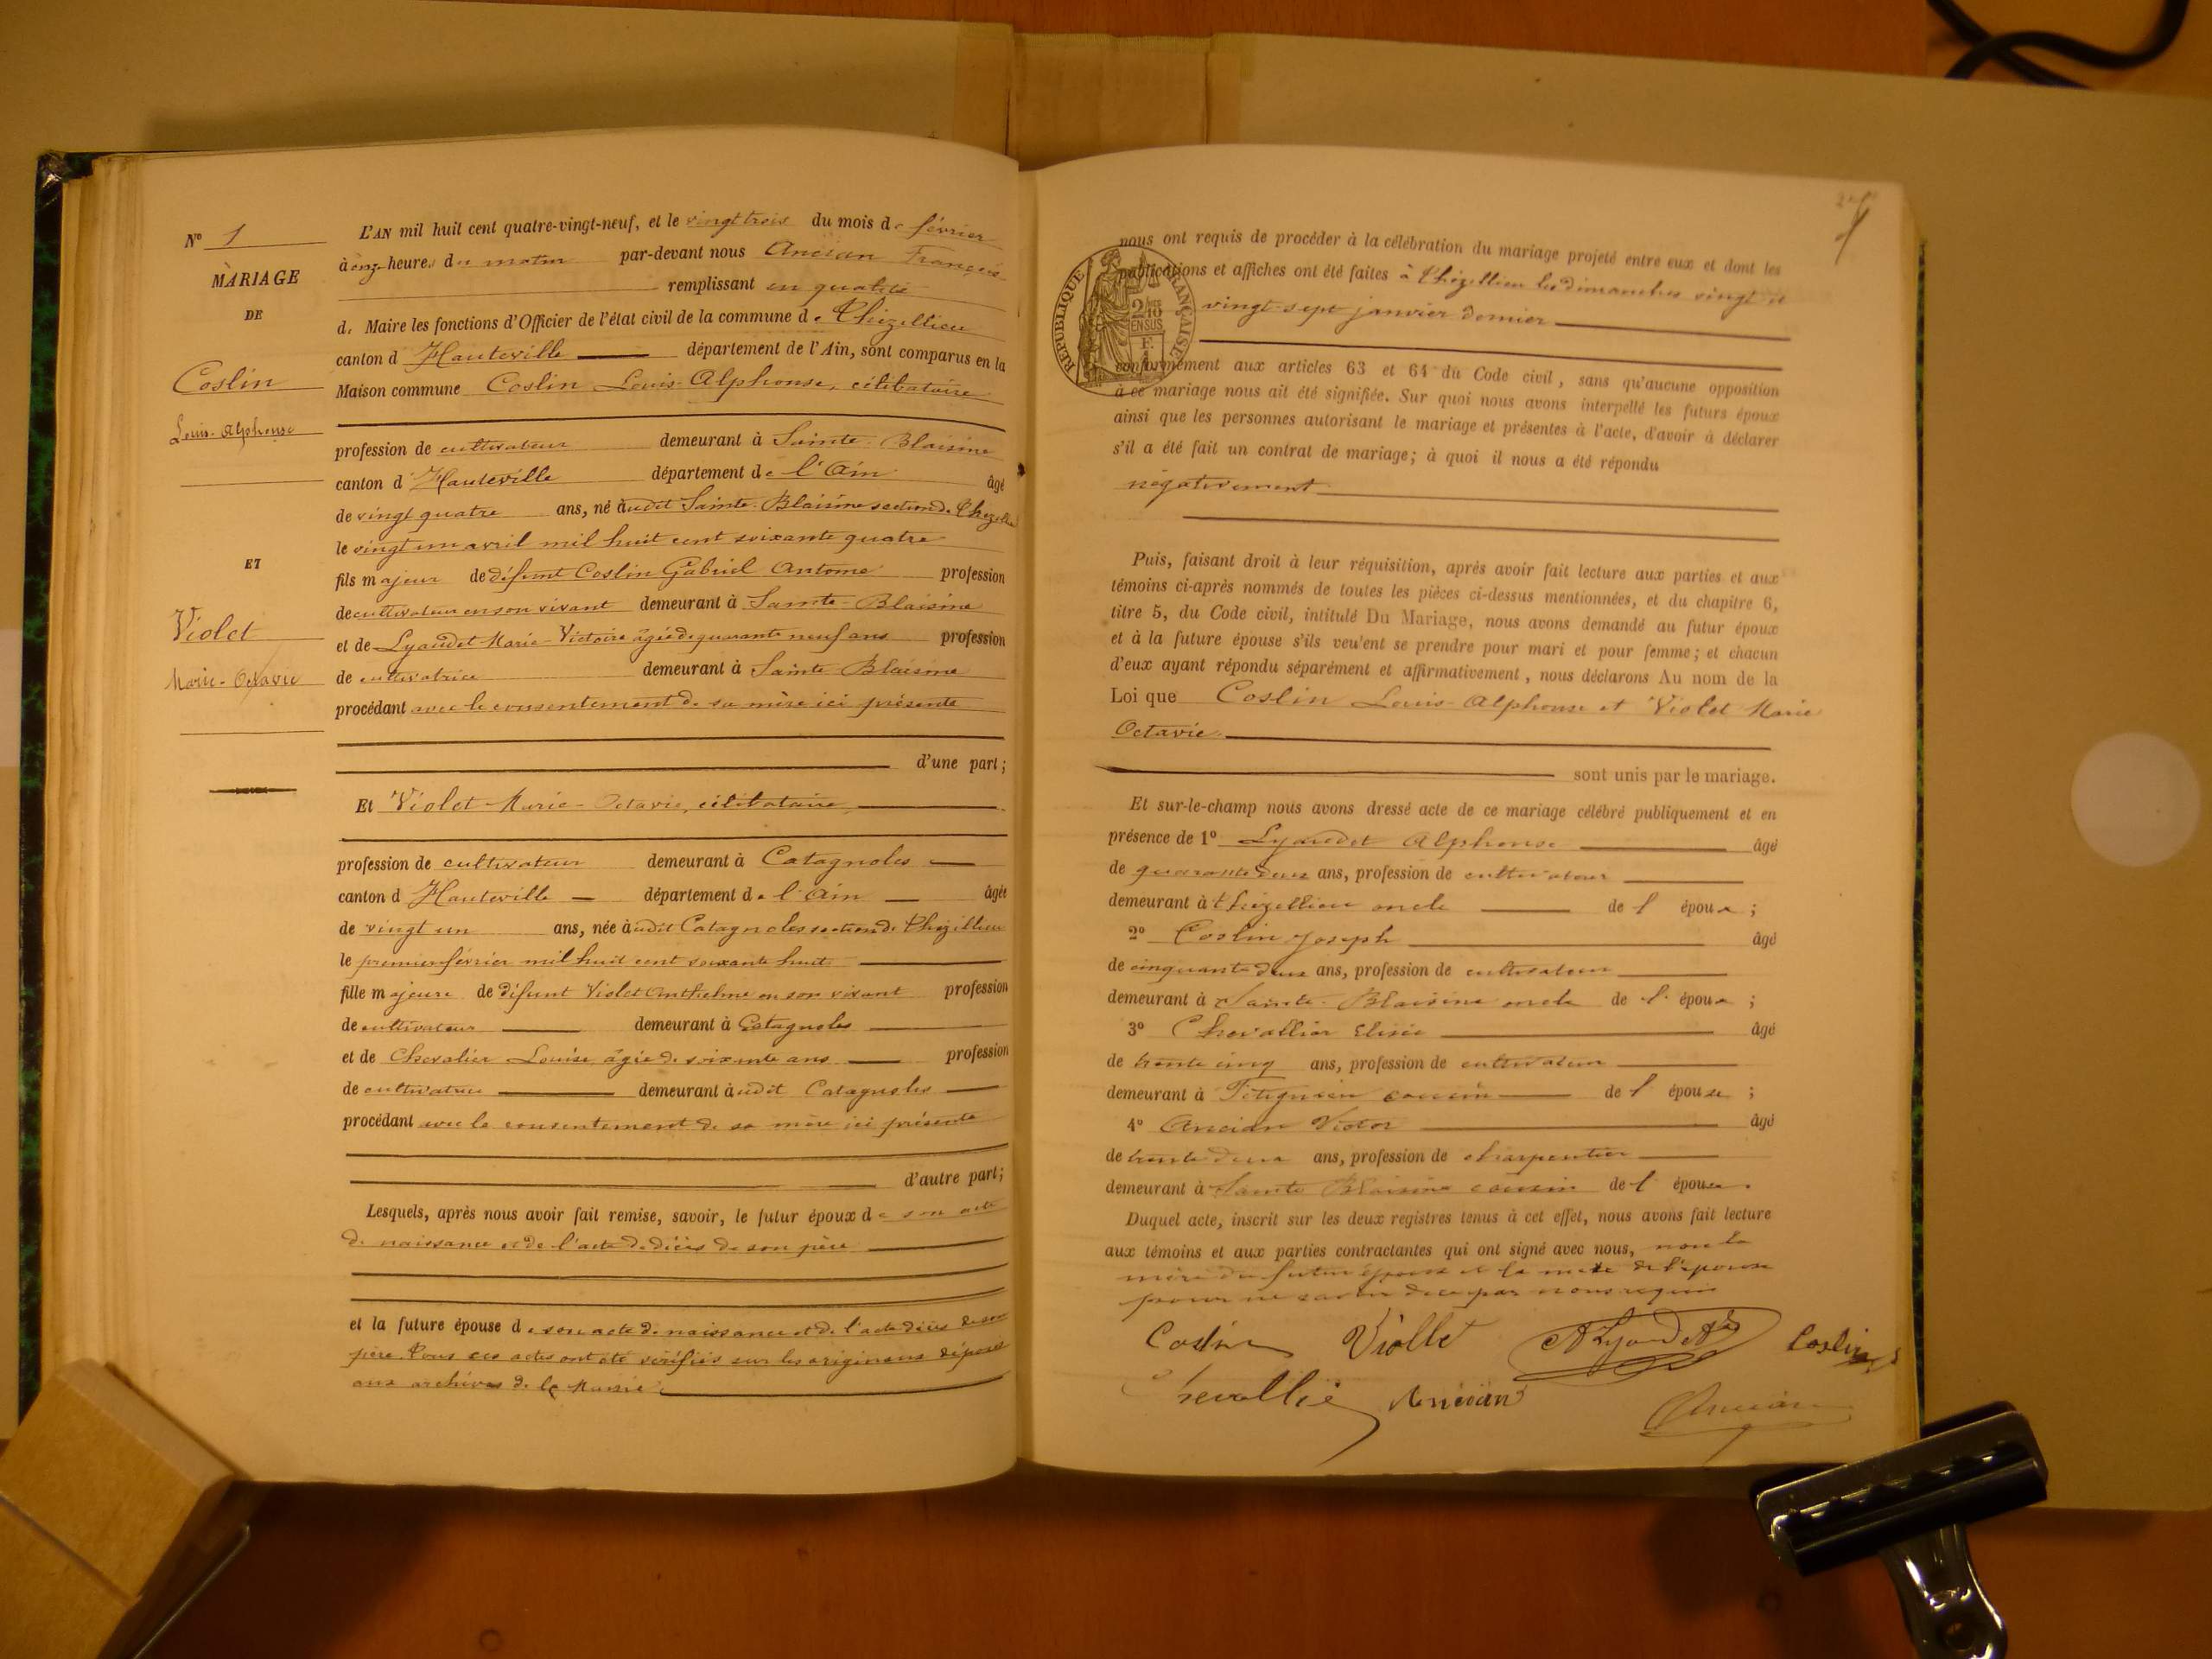 N° 1
MARIAGE
DE
Coslin
Louis-Alphonse
ET
Violet
Marie-Octavie
L'AN mil huit cent quatre-vingt-neuf, et le vingt trois du mois de février
à onze heures du matin par-devant nous Ancian François
remplissant en qualité
de Maire les fonctions d'Officier de l'état civil de la commune de Thézillieu
canton d Hauteville département de l'Ain, sont comparus en la
Maison commune Coslin Louis-Alphonse, célibataire
profession de cultivateur demeurant à Sainte-Blaisine
canton d' Hauteville département de l'Ain âgé
de vingt quatre ans, né audit Sainte-Blaisine section de Thézillieu
le vingt un avril mil huit cent soixante quatre
fils majeur de défunt Coslin Gabriel Antome profession
de cultivateur en son vivant demeurant à Sainte-Blaisine
et de Lyaudet Marie-Victoire âgée de quarante neuf ans profession
de cultivatrice demeurant à Sainte Blaisine
procédant avec le consentement de sa mère ici présente
d'une part;
Et Violet Marie-Octavie, célibataire
profession de cultivateur demeurant à Catagnoles
canton d Hauteville département de l'Ain âgée
de vingt un ans, née audit Catagnoles section de Thézillieu
le premier février mil huit cent soixante huit
fille majeure de défunt Violet Anthelme en son vivant profession
de cultivateur demeurant à Catagnoles
et de Chevalier Louise âgée de soixante ans profession
de cultivatrice demeurant audit Catagnoles
procédant avec le consentement de sa mère ici présente
d'autre part;
Lesquels, après nous avoir fait remise, savoir, le futur époux de son acte
de naissance et de l'acte de décès de son père
et la future épouse de son acte de naissance et de l'acte décès de son
père. Tous ces actes ont été vérifiés sur les originaux déposés
aux archives de la Mairie.
RÉPUBLIQUE FRANÇAISE
2/10
EN SUS
nous ont requis de procéder à la célébration du mariage projeté entre eux et dont les
publications et affiches ont été faites à Thézillieu les dimanches vingt et
vingt-sept janvier dernier
conformément aux articles 63 et 64 du Code civil, sans qu'aucune opposition
à ce mariage nous ait été signifiée. Sur quoi nous avons interpellé les futurs époux
ainsi que les personnes autorisant le mariage et présentes à l'acte, d'avoir à déclarer
s'il a été fait un contrat de mariage; à quoi il nous a été répondu
négativement
Puis, faisant droit à leur réquisition, après avoir fait lecture aux parties et aux
témoins ci-après nommés de toutes les pièces ci-dessus mentionnées, et du chapitre 6,
titre 5, du Code civil, intitulé Du Mariage, nous avons demandé au futur époux
et à la future épouse s'ils veulent se prendre pour mari et pour femme; et chacun
d'eux ayant répondu séparément et affirmativement, nous déclarons Au nom de la
Loi que Coslin Louis-Alphonse et Violet Marie
Octavie.
sont unis par le mariage.
Et sur-le-champ nous avons dressé acte de ce mariage célébré publiquement et en
présence de 1° Lyaudet Alphonse âgé
de quarante deux ans, profession de cultivateur
demeurant à Thézillieu oncle de l époux;
2° Coslin Joseph âgé
de cinquante deux ans, profession de cultivateur
demeurant à Sainte-Blaisine oncle de l' époux;
3° Chevallier Elisée âgé
de trente cinq ans, profession de cultivateur
demeurant à cousin de l' épouse;
4° Ancian Victor âgé
de trente deux ans, profession de charpentier
demeurant à Sainte Blaisine cousin de l' épouse.
Duquel acte, inscrit sur les deux registres tenus à cet effet, nous avons fait lecture
aux témoins et aux parties contractantes qui ont signé avec nous, non la
mère du futur époux et la mère de l'épouse
pour ne savoir de ce par nous requis
Coslin Viollet ALyaudet Coslin
Chevallier Ancian Ancian